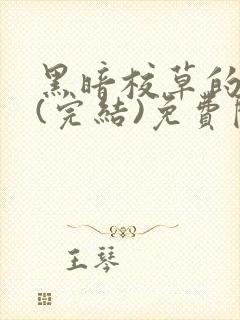 黑暗校草的
(完結)免費
王琴